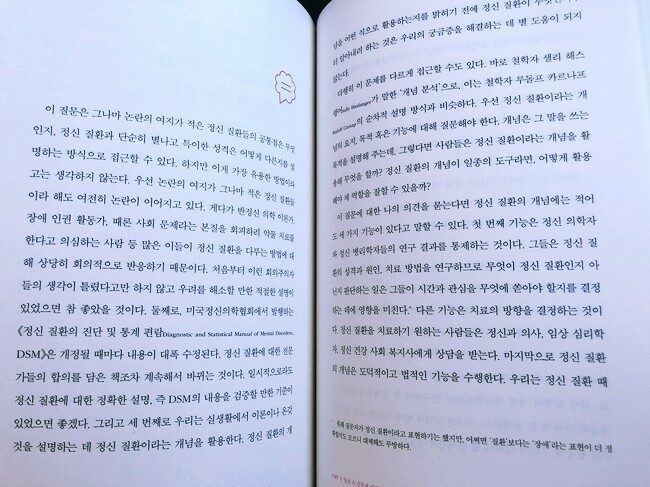 이 질문은 그나마 논란의 여지가 적은 정신 질환들의 공통점은 무엇
인지, 정신 질환과 단순히 별나고 특이한 성격은 어떻게 다른지를 설
명하는 방식으로 접근할 수 있다. 하지만 이게 가장 유용한 방법이라
고는 생각하지 않는다. 우선 논란의 여지가 그나마 적은 정신 질환들
이라 해도 여전히 논란이 이어지고 있다. 게다가 반정신 의학 이론가,
장애 인권 활동가, 때론 사회 문제라는 본질을 회피하려 약물 치료를
한다고 의심하는 사람 등 많은 이들이 정신 질환을 다루는 방법에 대
해 상당히 회의적으로 반응하기 때문이다. 처음부터 이런 회의주의자
들의 생각이 틀렸다고만 하지 않고 우려를 해소할 만한 적절한 설명이
있었으면 참 좋았을 것이다. 둘째로, 미국정신의학협회에서 발행하는
《정신 질환의 진단 및 통계 편람Diagnostic and Statistical Manual of Mental Disorders,
DSM》은 개정될 때마다 내용이 대폭 수정된다. 정신 질환에 대한 전문
가들의 합의를 담은 책조차 계속해서 바뀌는 것이다. 일시적으로라도
정신 질환에 대한 정확한 설명, 즉 DSM의 내용을 검증할 만한 기준이
있었으면 좋겠다. 그리고 세 번째로 우리는 실생활에서 이론이나 온갖
것을 설명하는 데 정신 질환이라는 개념을 활용한다. 정신 질환의 개
념을 어떤 식으로 활용하는지를 밝히기 전에 정신 질환이
알아내려 하는 것은 우리의 궁금증을 해결하는 데 별 도움이 되지
않는다.
다행히 이 문제를 다르게 접근할 수도 있다. 바로 철학자 샐리 해스
랭어Sally Haslanger가 말한 '개념 분석'으로, 이는 철학자 루돌프 카르나프
Rudolf Carnap의 순차적 설명 방식과 비슷하다. 우선 정신 질환이라는 개
념의 요지, 목적 혹은 기능에 대해 질문해야 한다. 개념은 그 말을 쓰는
목적을 설명해 주는데, 그렇다면 사람들은 정신 질환이라는 개념을 활
용해 무엇을 할까? 정신 질환의 개념이 일종의 도구라면, 어떻게 활용
해야 제 역할을 잘할 수 있을까?
이 질문에 대한 나의 의견을 묻는다면 정신 질환의 개념에는 적어
도 세 가지 기능이 있다고 말할 수 있다. 첫 번째 기능은 정신 의학자
와 정신 병리학자들의 연구 결과를 통제하는 것이다. 그들은 정신 질
환의 성격과 원인, 치료 방법을 연구하므로 무엇이 정신 질환인지 아
닌지 판단하는 일은 그들이 시간과 관심을 무엇에 쏟아야 할지를 결정
하는 데에 영향을 미친다.* 다른 기능은 치료의 방향을 결정하는 것이
다. 정신 질환을 치료하기 원하는 사람들은 정신과 의사, 임상 심리학
자, 정신 건강 사회 복지사에게 상담을 받는다. 마지막으로 정신 질환
의 개념은 도덕적이고 법적인 기능을 수행한다. 우리는 정신 질환 때
* 원래 질문자가 정신 질환이라고 표현하기는 했지만, 어쩌면 '질환'보다는 '장애'라는 표현이 더 정
확할지도 모르니 대체해도 무방하다.